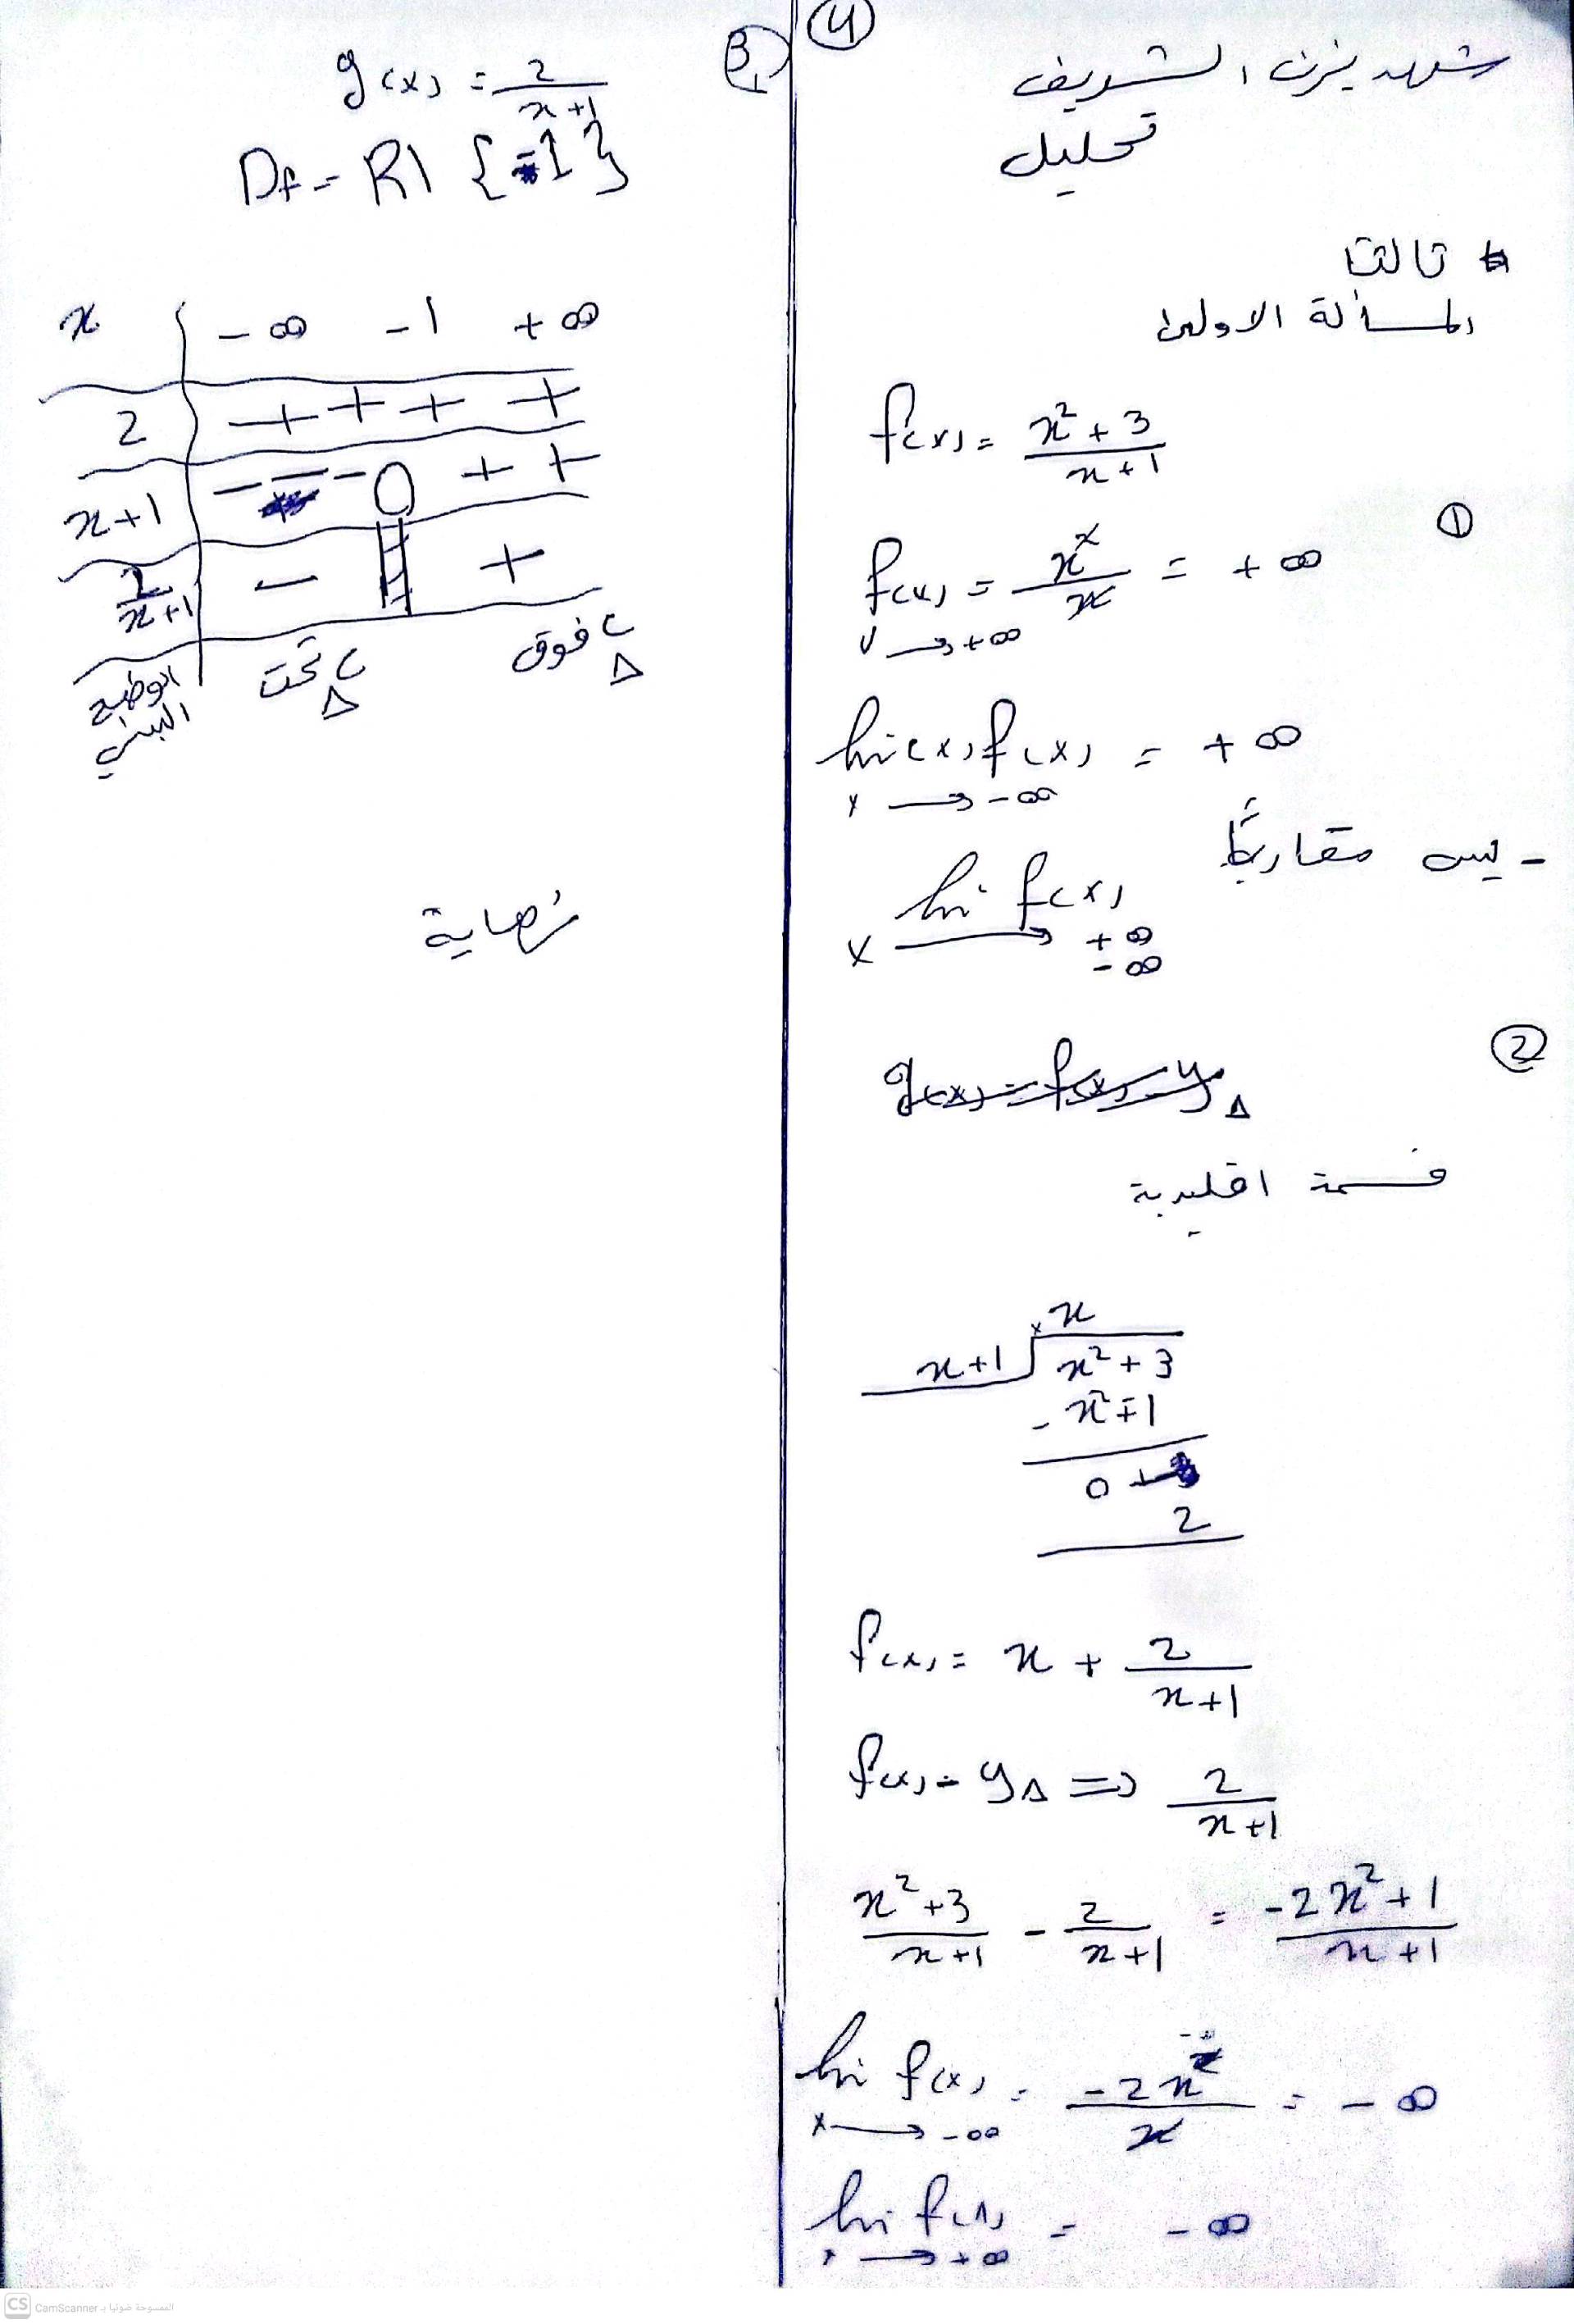 4
شهد يزن الشريف
تحليل
ثالثا
المسألة الاولى
f(x) = x² + 3 / x + 1
①
f(x) = x² / x = + ∞
x → +∞
f(x) = + ∞
x → - ∞
- ليس مقارباً
lim f(x)
x → + ∞
- ∞
②
g(x) = f(x) - y∆
قسمة اقليدية
x
x+1 | x² + 3
- x² ∓ 1
0 +
2
f(x) = x + 2 / x+1
f(x) - y∆ ⇒ 2 / x+1
x² + 3 / x+1 - 2 / x+1 = -2x² + 1 / x+1
lim f(x) = -2x² / x = - ∞
x → -∞
lim f(x) = - ∞
x → +∞
3
g(x) = 2 / x+1
Df = R\ {-1}
x - ∞ -1 + ∞
2 + + + +
x+1 - - - 0 + +
2 / x+1 - || +
الوضع النسبي C تحت ∆ C فوق ∆
نهاية
CS CamScanner الممسوحة ضوئيا بـ